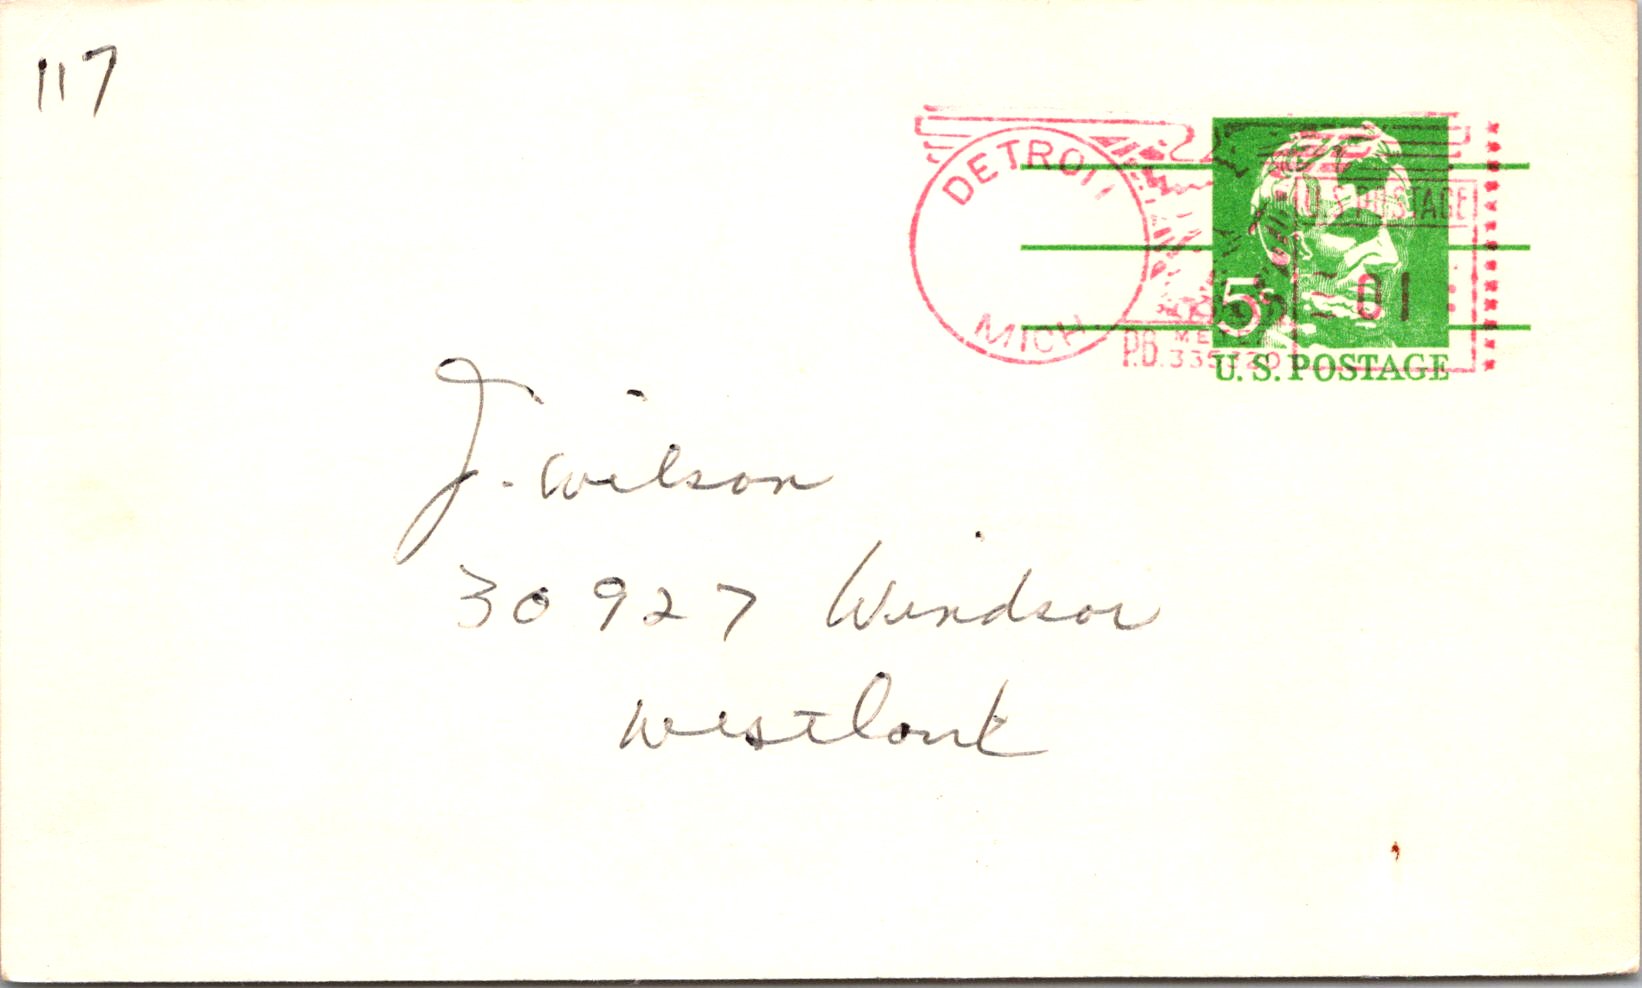 117
DETROIT
MICH
U.S. POSTAGE
01
5c
P.B. METER
U.S. POSTAGE
J. Wilson
30927 Windsor
Westland